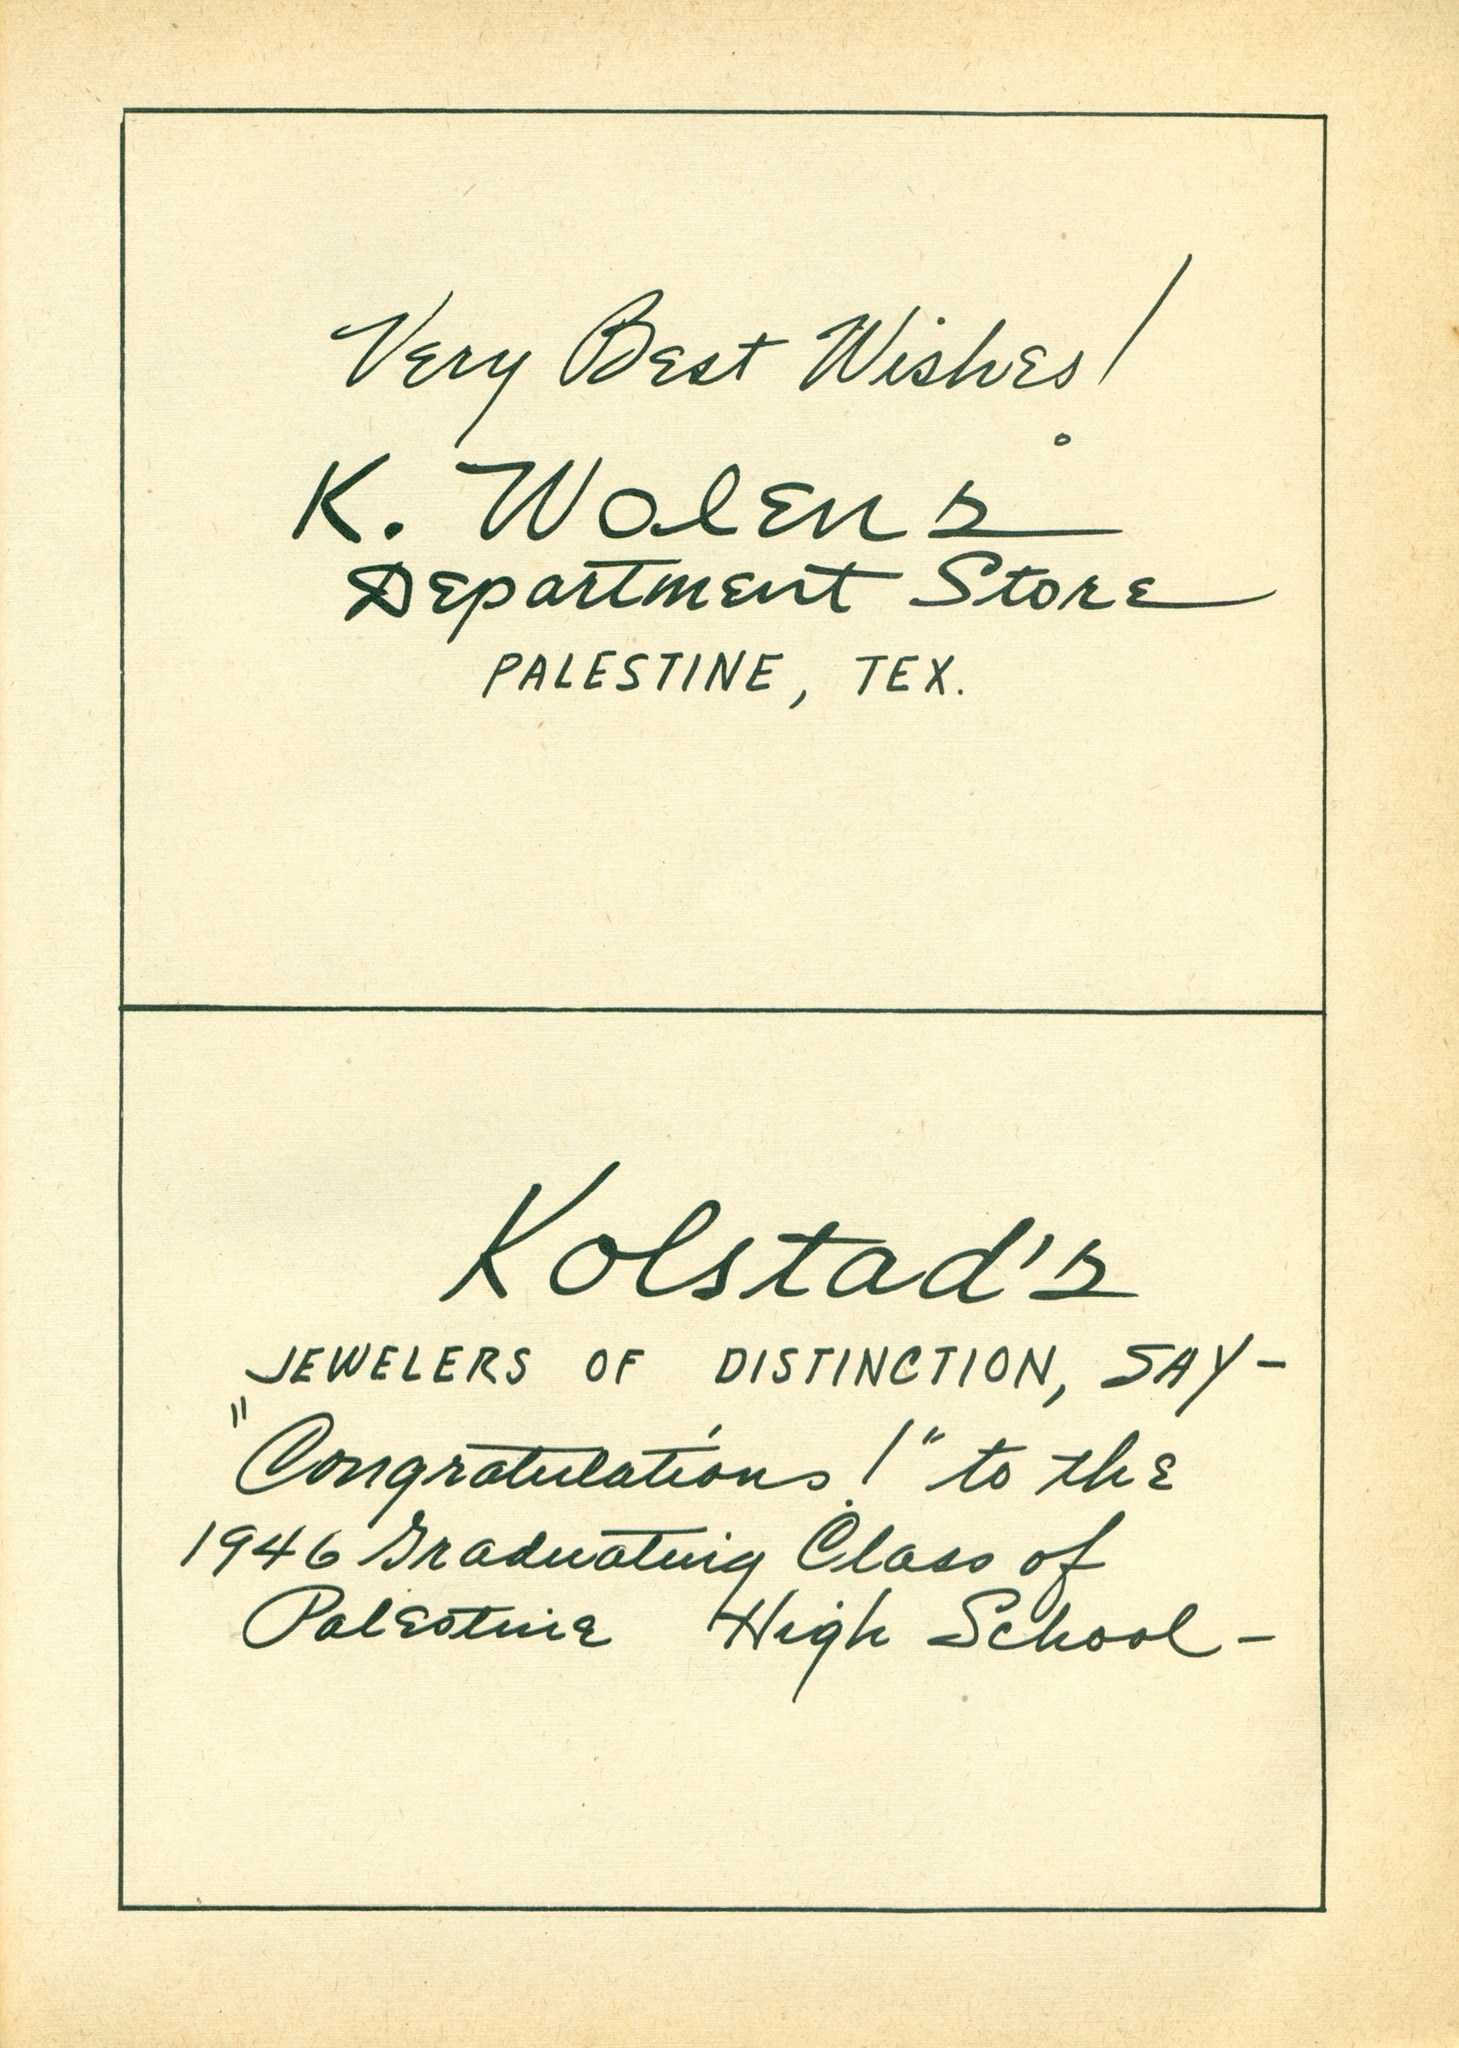 Very Best Wishes!
K. Wolens
Department Store
PALESTINE, TEX.
Kolstad's
JEWELERS OF DISTINCTION, SAY-
"Congratulations!" to the
1946 Graduating Class of
Palestine High School-